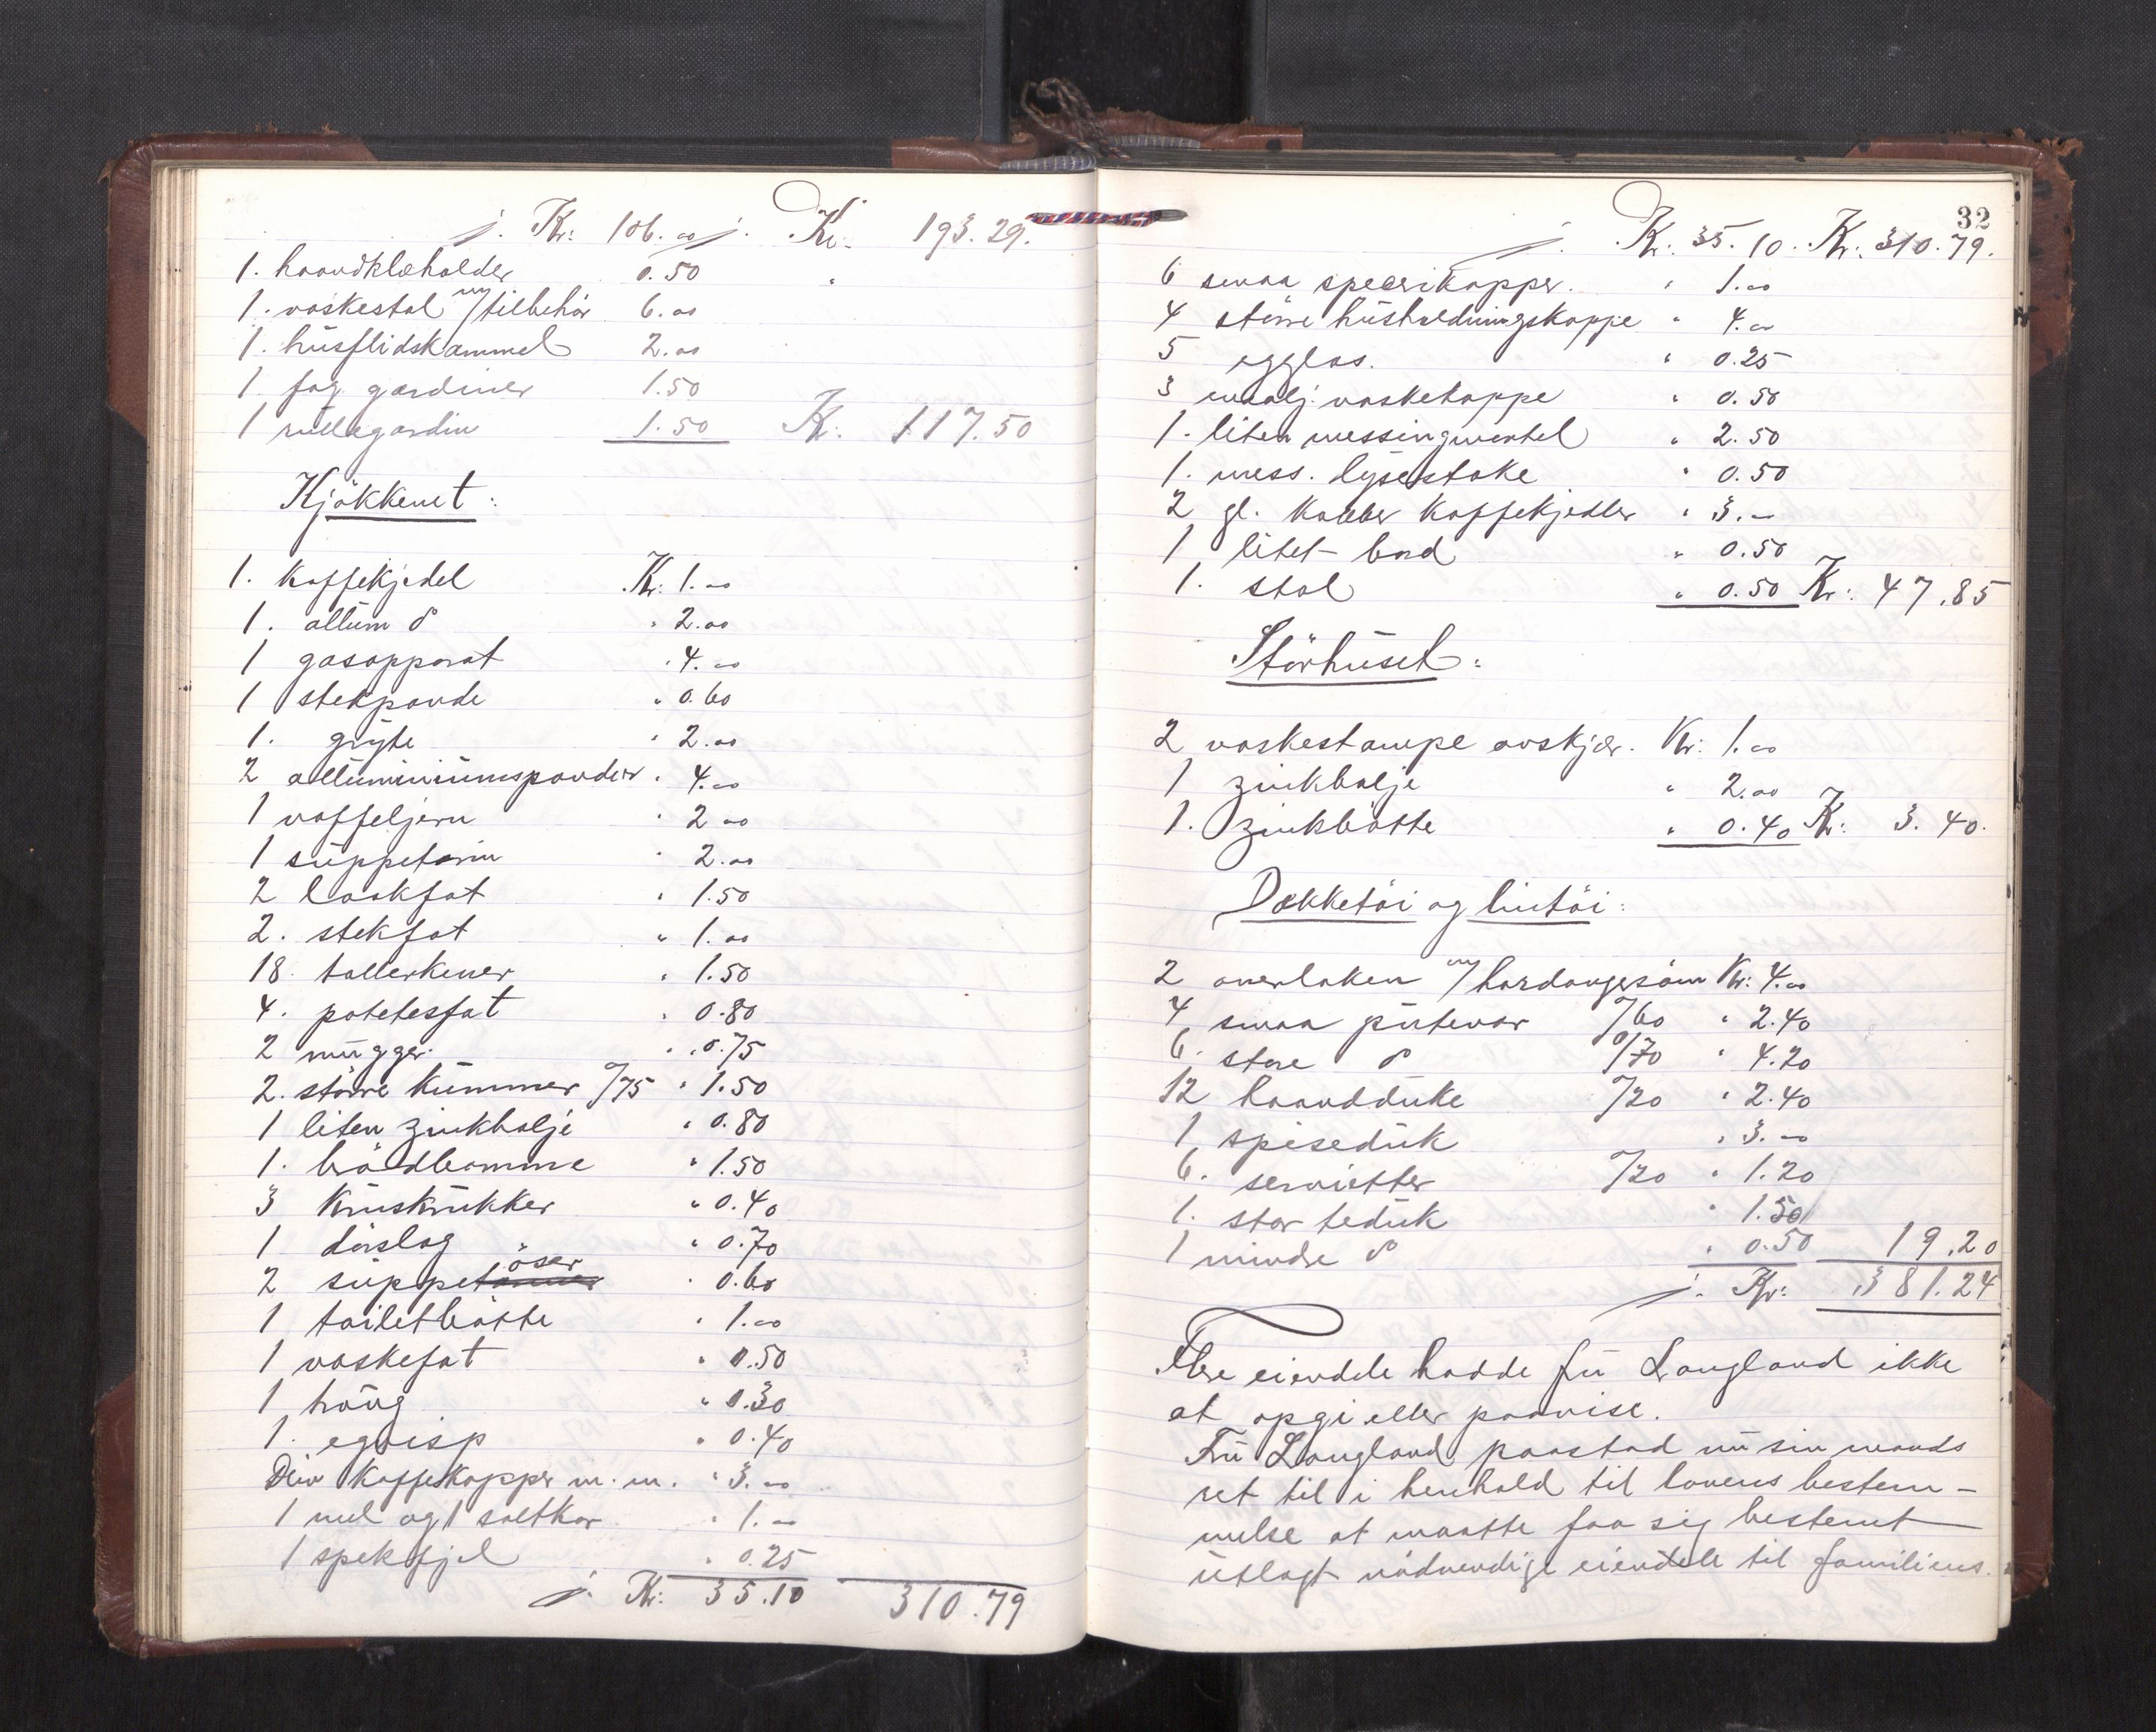 j. Kr: 106.00 j. Kr: 193.29.
1. haandklæholder 0.50 "
1. vaskestol m/tilbehör 6.00
1. husflidskammel 2.00
1 fag gardiner 1.50
1 rullegardin 1.50 Kr. 117.50
Kjökkenet:
1. kaffekjedel Kr. 1.00
1. allum do " 2.00
1 gasapparat " 4.00
1 stekpande " 0.60
1. gryte " 2.00
2 alluminiumspander " 4.00
1 vaffeljern " 2 00
1 suppeterin " 2.00
2 laakfat " 1.50
2. stekfat " 1.00
18. tallerkener " 1.50
4. potetesfat " 0.80
2 mugger " 0.75
2. större kummer a/75 " 1.50
1 liten zinkbalje " 0.80
1. brödbomme " 1.50
3 kruskrukker " 0.40
1 dörslag " 0.70
2 suppeöser " 0.60
1 toiletbötte " 1.00
1 vaskefat " 0.50
1 traug " 0.30
1. egvisp " 0.40
Div kaffekopper m.m. " 3.00
1 mel og 1 saltkar " 1.00
1 spekefjel " 0.25
j. Kr: 35.10 310.79
32
j. Kr. 35.10. Kr. 310.79.
6 smaa specerikopper. " 1.00
4 större husholdningskoppe " 4.00
5 egglas. " 0.25
3 emalj. vaskekoppe " 0.50
1. liten messingmortel " 2.50
1. mess. lysestake " 0.50
2 gl. kobber kaffekjedler " 3.00
1 litet bord " 0.50
1. stol " 0.50 Kr: 47.85
Störhuset:
2 vaskestampe avskjær. Kr: 1.00
1 zinkbalje " 2.00
1. zinkbötte " 0.40 Kr: 3.40.
Dækketöi og lintöi:
2 overlaken m/hardangersöm Kr: 4.00
4 smaa putevar a/60 " 2.40
6. store do a/70 " 4.20
12 haandduke a/20 " 2.40
1 spiseduk " 3.00
6. servietter a/20 " 1.20
1. stor teduk " 1.50
1 mindre do " 0.50 19.20
j. Kr: 381.24
Flere eiendele hadde fru Langland ikke
at opgi eller paavise.
Fru Langland paastod nu sin mands
ret til i henhold til lovens bestem-
melse at maatte faa sig bestemt
utlagt nödvendige eiendele til familiens